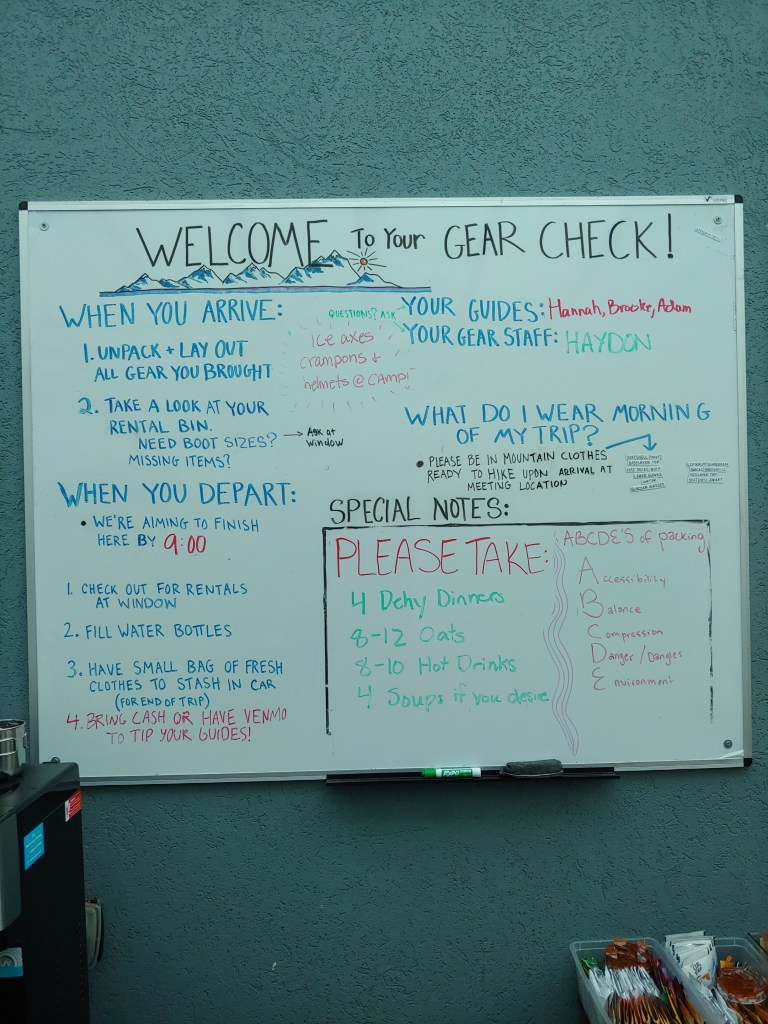 WELCOME To Your GEAR CHECK!
WHEN YOU ARRIVE:
1. UNPACK + LAY OUT
ALL GEAR YOU BROUGHT
2. TAKE A LOOK AT YOUR
RENTAL BIN.
NEED BOOT SIZES? → Ask at
MISSING ITEMS? window
QUESTIONS? ASK
Ice axes
crampons +
helmets @ CAMP!
YOUR GUIDES: Hannah, Brooke, Adam
YOUR GEAR STAFF: HAYDON
WHAT DO I WEAR MORNING
OF MY TRIP?
• PLEASE BE IN MOUNTAIN CLOTHES
READY TO HIKE UPON ARRIVAL AT
MEETING LOCATION
WHEN YOU DEPART:
• WE'RE AIMING TO FINISH
HERE BY 9:00
1. CHECK OUT FOR RENTALS
AT WINDOW
2. FILL WATER BOTTLES
3. HAVE SMALL BAG OF FRESH
CLOTHES TO STASH IN CAR
(FOR END OF TRIP)
4. BRING CASH OR HAVE VENMO
TO TIP YOUR GUIDES!
SPECIAL NOTES:
PLEASE TAKE:
4 Dehy Dinners
8-12 Oats
8-10 Hot Drinks
4 Soups if you desire
ABCDE'S of packing
Accessibility
Balance
Compression
Danger/Dangles
Environment
EXPO